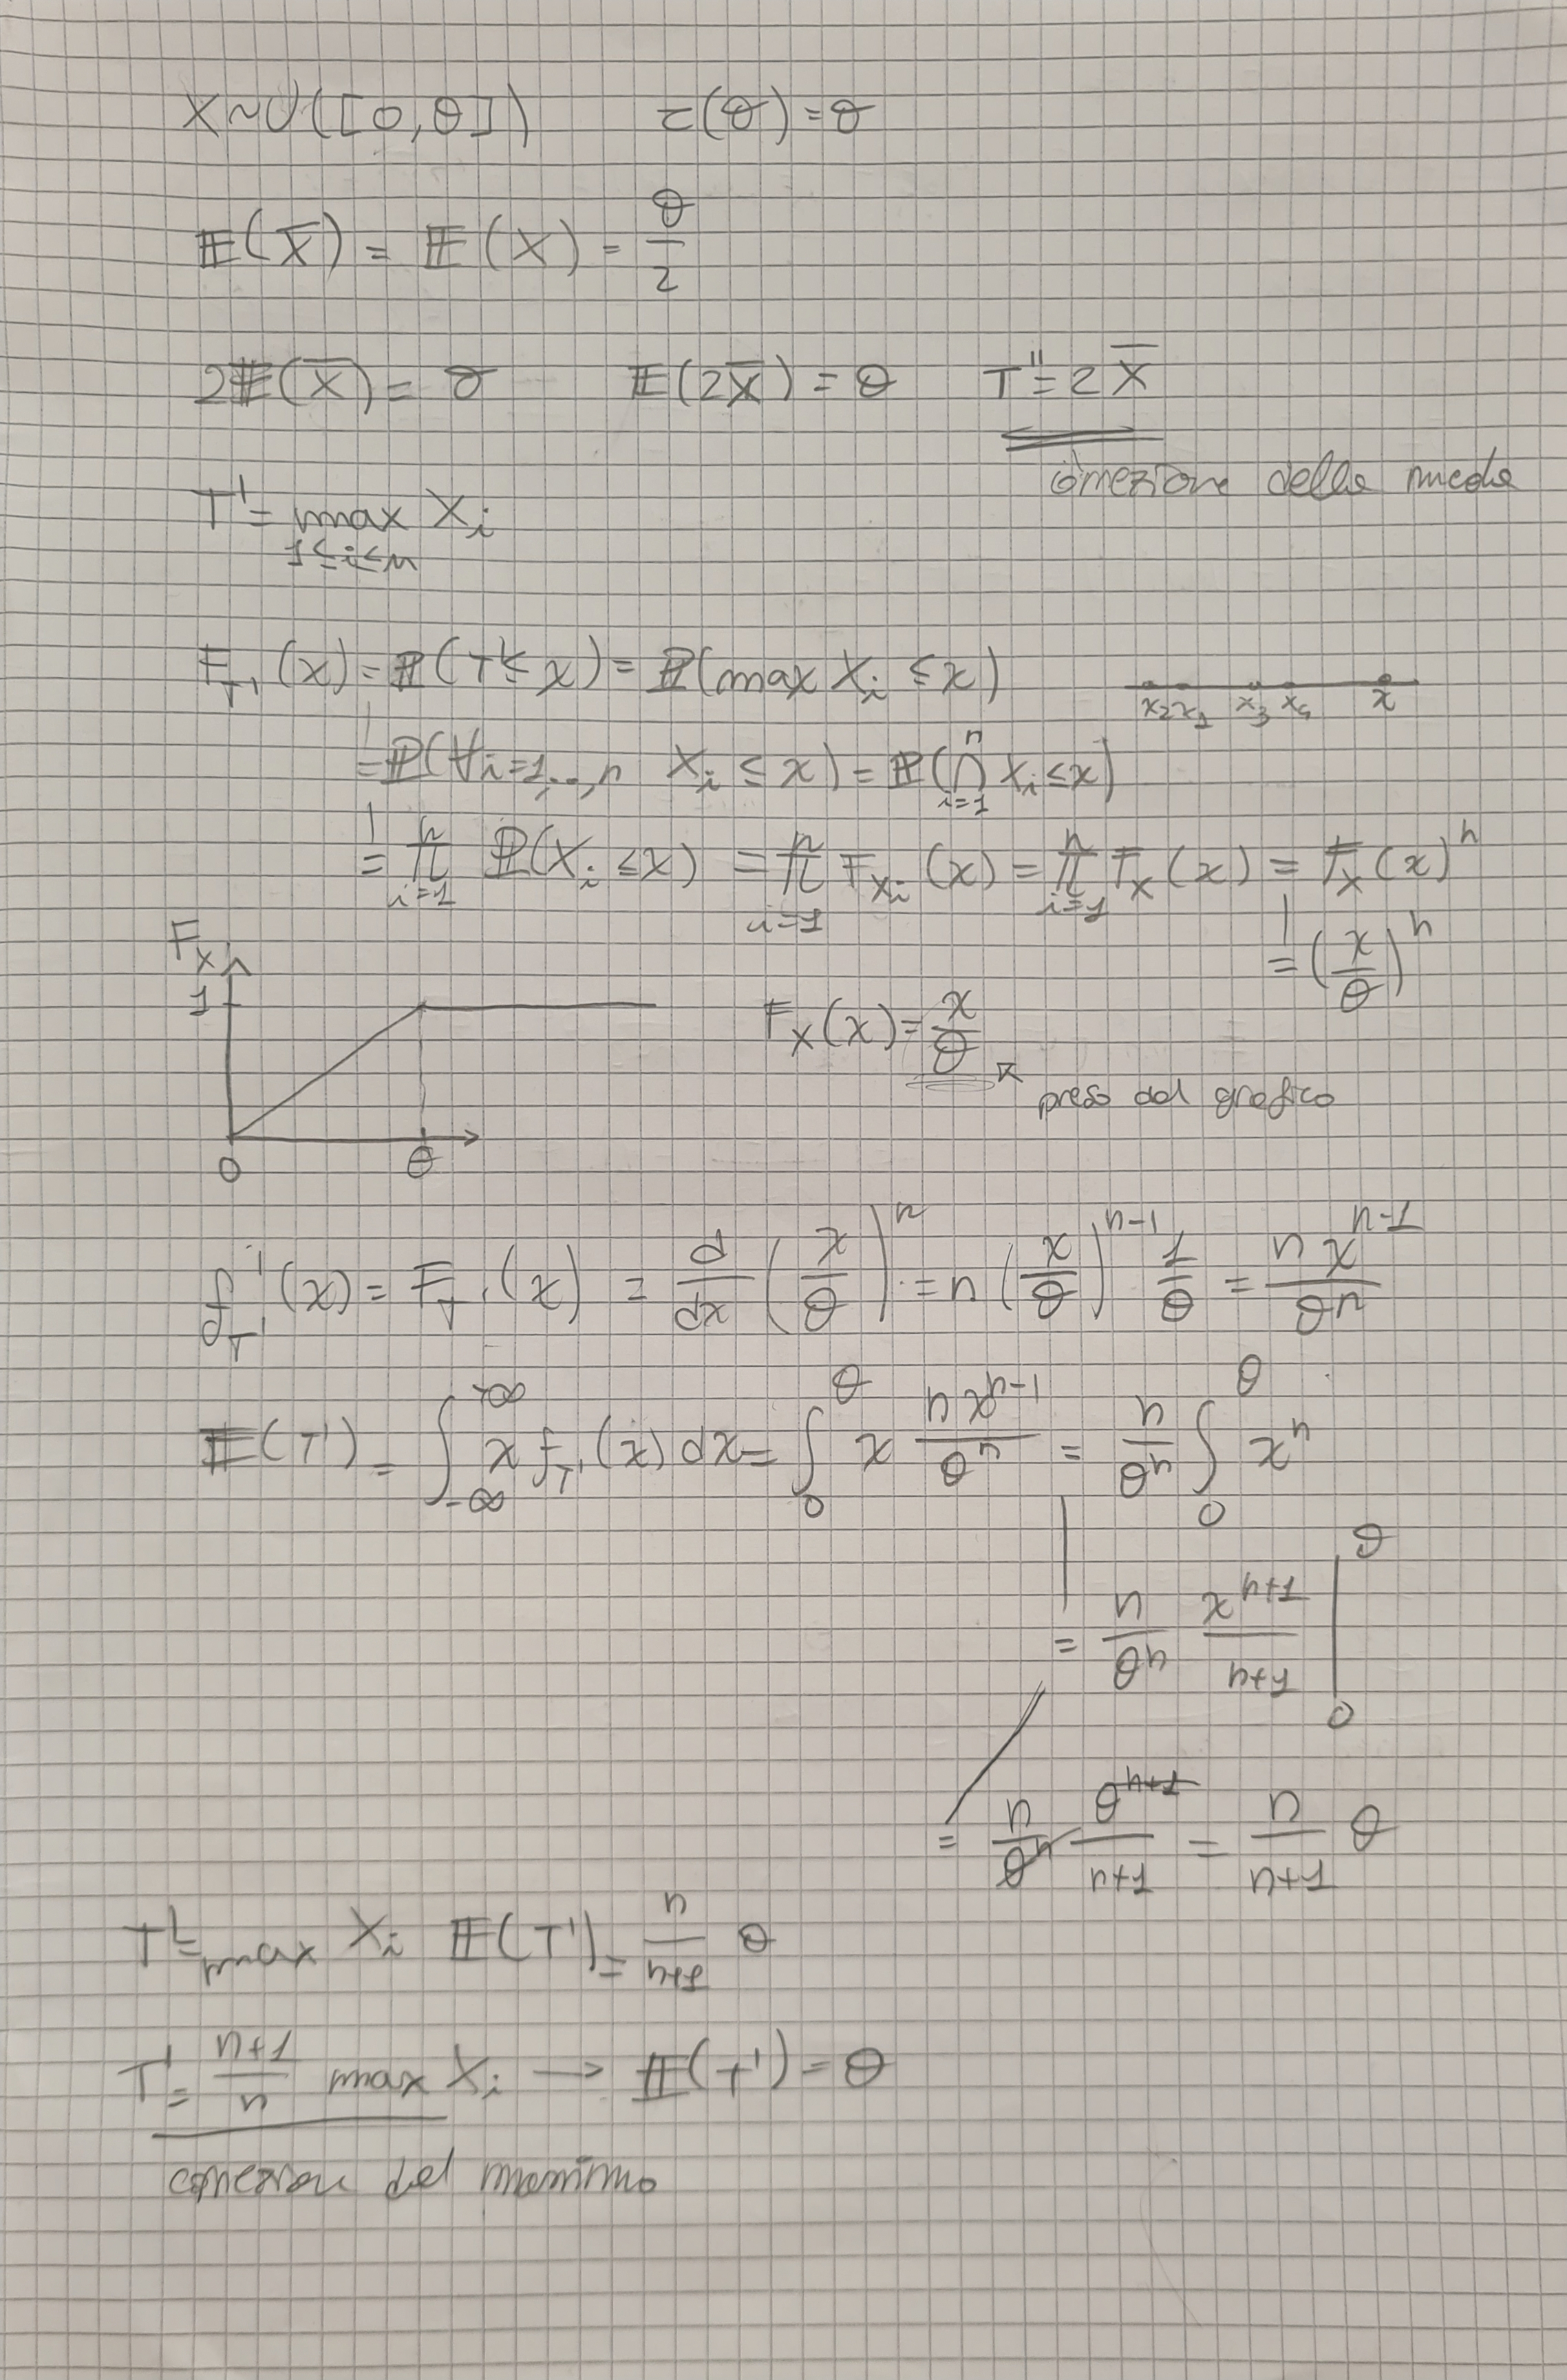 X~U([0,θ])   τ(θ)=θ
𝔼(X̄) = 𝔼(X) = θ/2
2𝔼(X̄) = θ   𝔼(2X̄) = θ   T'' = 2X̄
correzione della media
T' = max Xi
1≤i≤n
F_T'(x) = ℙ(T' ≤ x) = ℙ(max Xi ≤ x)
x2 x1 x3 x4 x
= ℙ(∀i=1,..,n Xi ≤ x) = ℙ(⋂_{i=1}^{n} Xi ≤ x)
= ∏_{i=1}^{n} ℙ(Xi ≤ x) = ∏_{i=1}^{n} F_Xi(x) = ∏_{i=1}^{n} F_X(x) = F_X(x)^n
= (x/θ)^n
F_X
1
F_X(x) = x/θ
preso dal grafico
0 θ
f_T'(x) = F'_T'(x) = d/dx (x/θ)^n = n (x/θ)^{n-1} 1/θ = n x^{n-1}/θ^n
𝔼(T') = ∫_{-∞}^{+∞} x f_T'(x) dx = ∫_0^θ x n x^{n-1}/θ^n = n/θ^n ∫_0^θ x^n
= n/θ^n x^{n+1}/n+1 |_0^θ
= n/θ^n θ^{n+1}/n+1 = n/n+1 θ
T' = max Xi   𝔼(T') = n/n+1 θ
T' = n+1/n max Xi → 𝔼(T') = θ
correzione del massimo